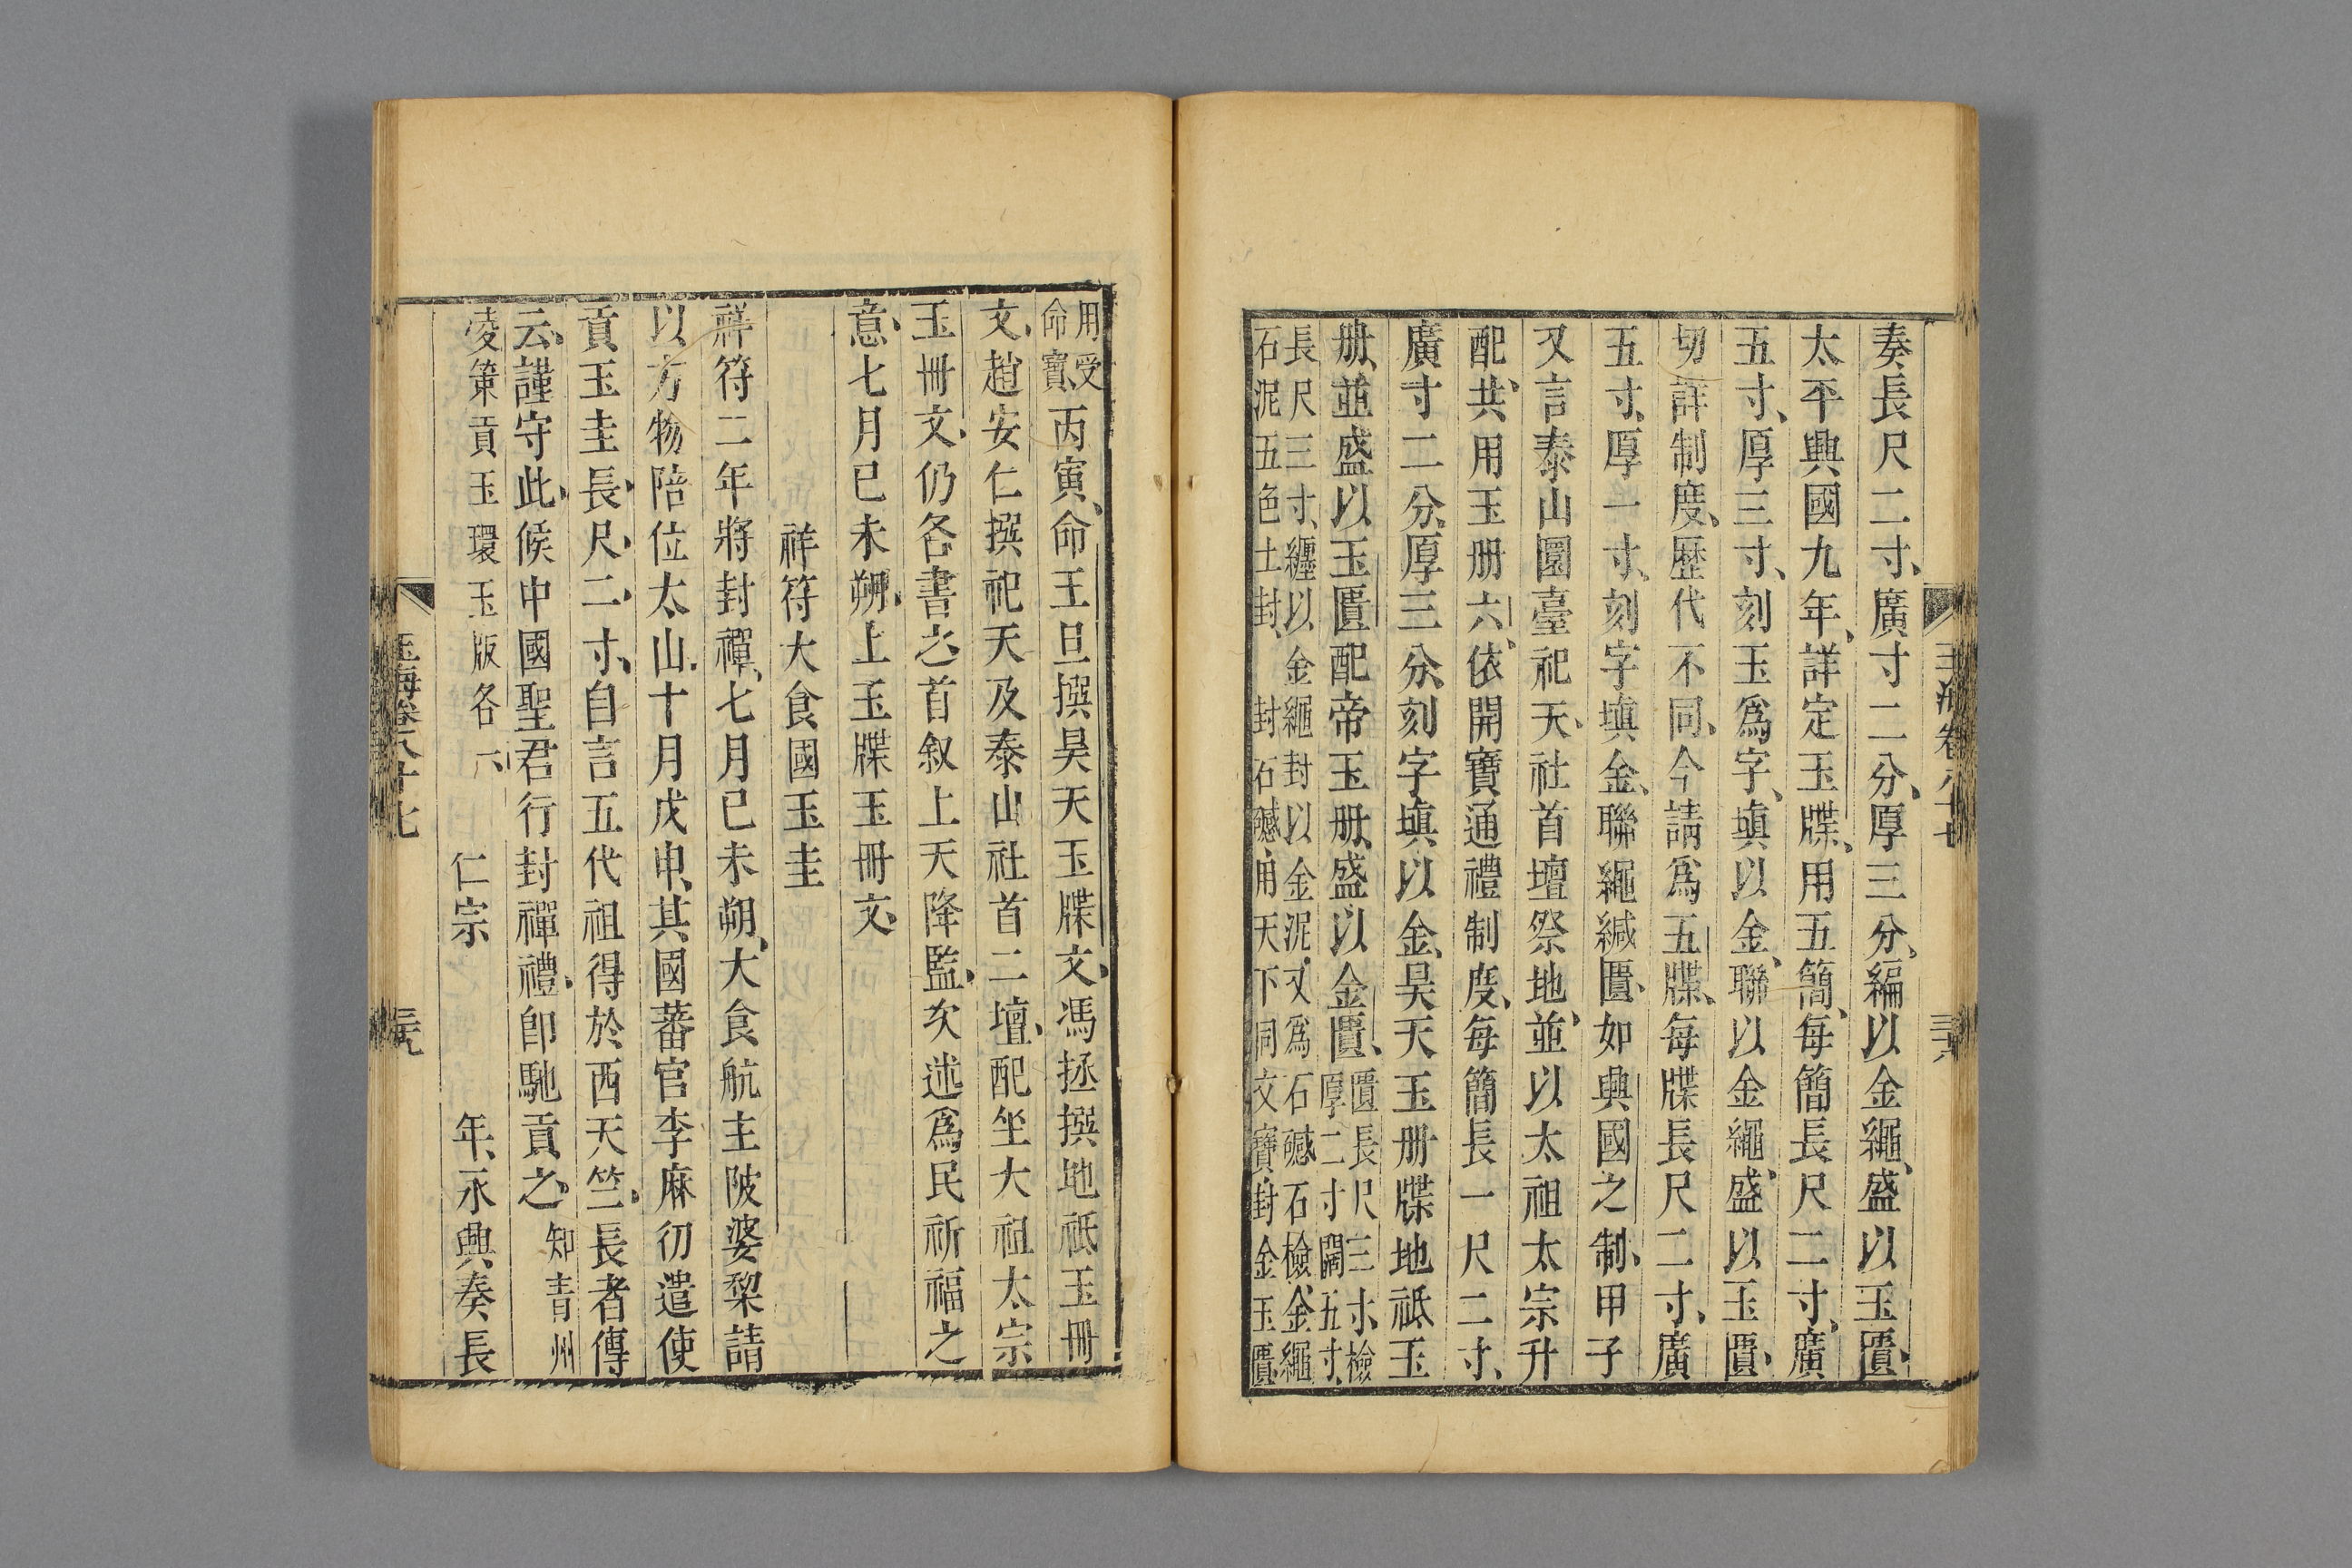 奏長尺二寸、廣寸二分、厚三分、編以金繩、盛以玉匱、
太平興國九年、詳定玉牒、用五簡、每簡長尺二寸、廣
五寸、厚三寸、刻玉爲字、塡以金、聯以金繩、盛以玉匱、
切詳制度、歷代不同、今請爲五牒、每牒長尺二寸、廣
五寸、厚一寸、刻字塡金、聯繩緘匱、如興國之制、甲子
又言泰山圜臺祀天、社首壇祭地、並以太祖太宗升
配、共用玉册六、依開寶通禮制度、每簡長一尺二寸、
廣寸二分、厚三分、刻字塡以金、昊天玉册牒地祗玉
册、並盛以玉匱配帝玉册、盛以金匱、匱長尺三寸、檢
厚二寸闊五寸、
長尺三寸、纏以金繩封以金泥、又爲石䃭石檢、金繩
石泥五色土封、封石䃭、用天下同文寶、封金玉匱、
用受
命寶、丙寅、命王旦撰昊天玉牒文、馮拯撰地祗玉冊
文、趙安仁撰祀天及泰山社首二壇、配坐大祖太宗
玉冊文、仍各書之、首叙上天降監、次述爲民祈福之
意、七月巳未朔、上玉牒玉冊文、
祥符大食國玉圭
祥符二年將封禪、七月己未朔、大食舶主陂婆棃請
以方物陪位太山、十月戊申、其國蕃官李麻彷遣使
貢玉圭長尺二寸、自言五代祖得於西天竺、長者傳
云、謹守此、候中國聖君行封禪禮、卽馳貢之、知青州
凌策貢玉環玉版各六、仁宗年、永興奏長
玉海卷八十七
三六
玉海卷八十七
三九